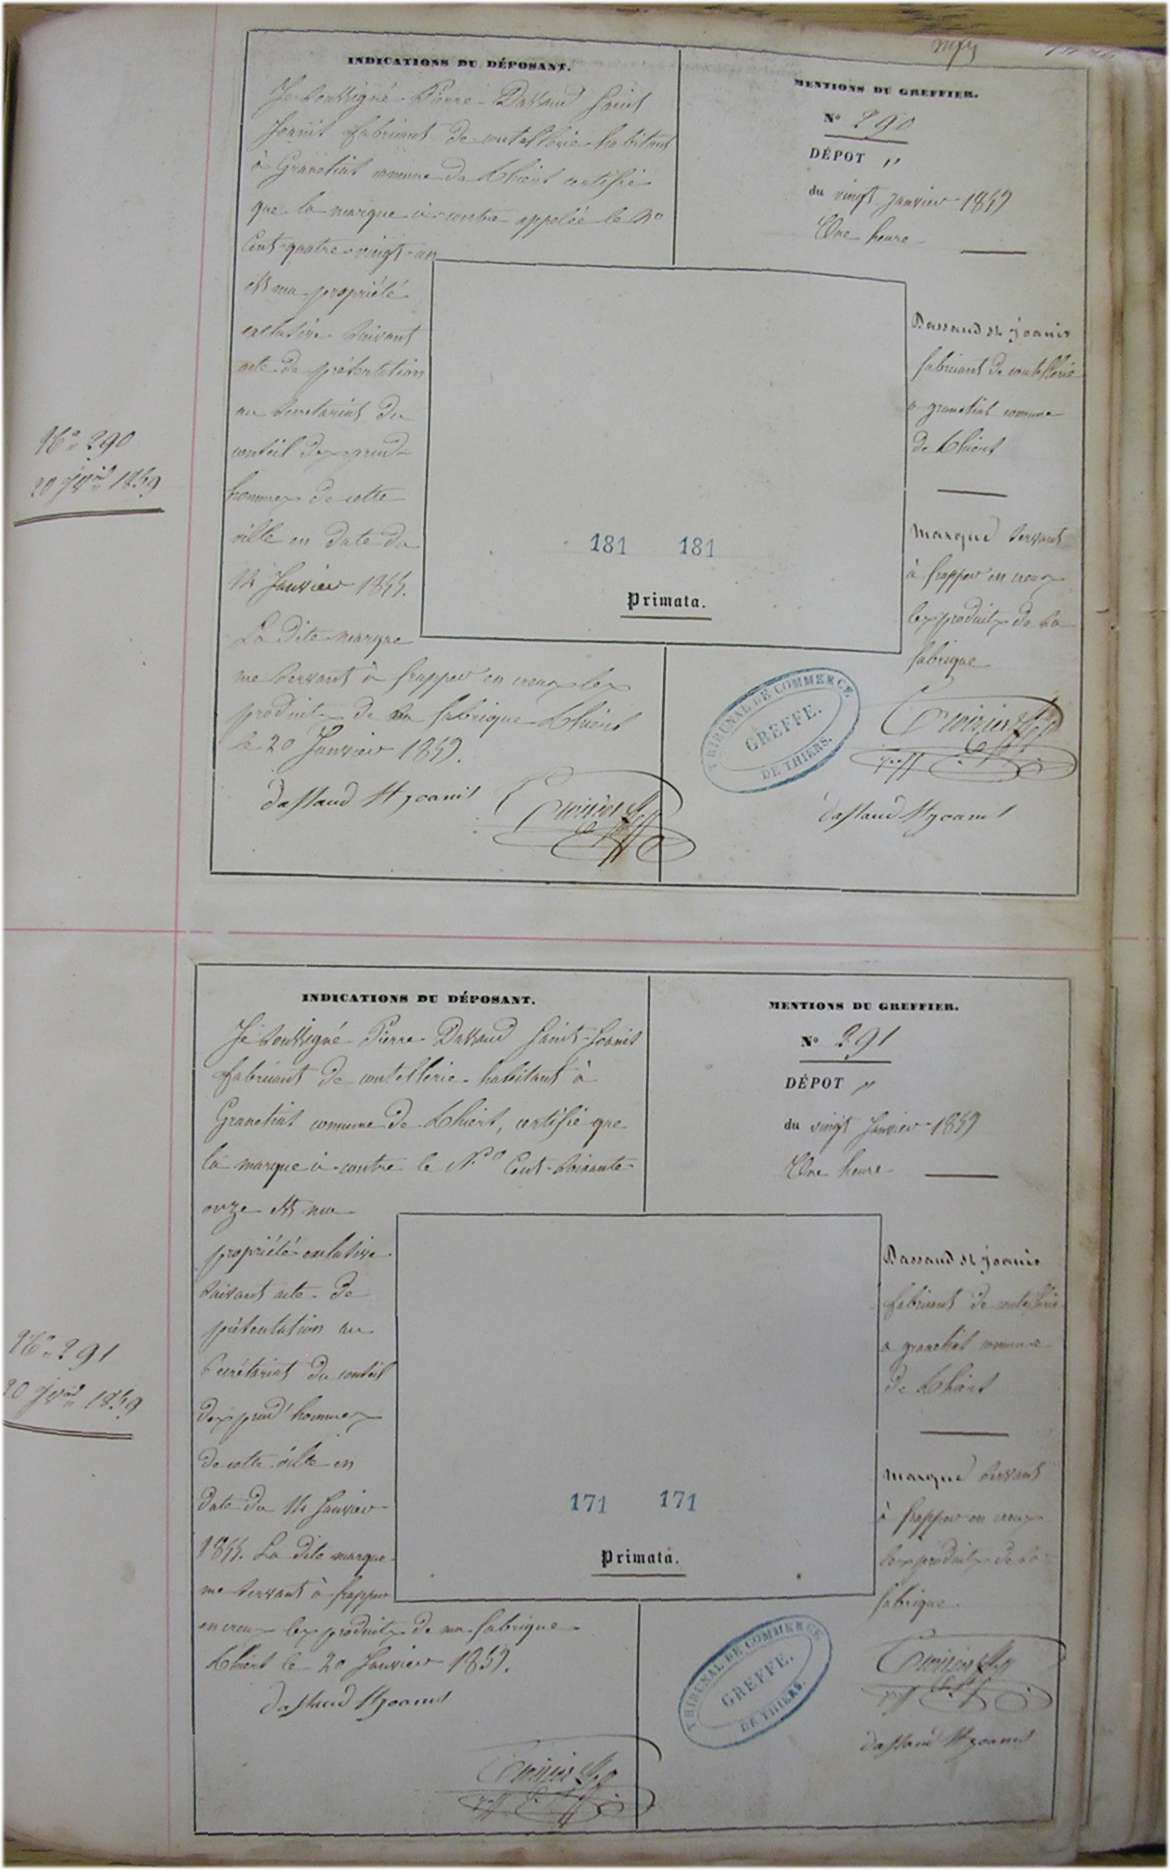 INDICATIONS DU DÉPOSANT.
Je soussigné Pierre Dassaud Saint
Joanis fabricant de coutellerie habitant
à Granetias commune de Thiers certifie
que la marque ci-contre appelée le No
Cent-quatre-vingt-un
est ma propriété
exclusive suivant
acte de présentation
au secrétariat du
conseil des prud-
hommes de cette
ville en date du
Janvier
La dite marque
me servant à frapper en creux les
produits de ma fabrique Thiers
le 20 Janvier 1859.
dassaud St joanis
MENTIONS DU GREFFIER.
No 290
DÉPOT "
du vingt Janvier 1859
Une heure
Dassaud st joanis
fabricant de coutellerie
a granetias commune
de Thiers
marque servant
à frapper en creux
les produits de sa
fabrique
dassaud St joanis
181 181
Primata.
TRIBUNAL DE COMMERCE
GREFFE.
DE THIERS.
No 290
20 Jver 1859
INDICATIONS DU DÉPOSANT.
Je soussigné Pierre Dassaud Saint-Joanis
fabricant de coutellerie habitant à
Granetias commune de Thiers, certifie que
la marque ci-contre le No Cent-soixante-
onze est ma
propriété exclusive
suivant acte de
présentation au
secrétariat du conseil
des prud'hommes
de cette ville en
date du Janvier
La dite marque
me servant à frapper
en creux les produits de ma fabrique.
Thiers le 20 Janvier 1859.
dassaud St joanis
MENTIONS DU GREFFIER.
No 291
DÉPOT "
du vingt Janvier 1859
Une heure
Dassaud st joanis
fabricant de coutellerie
a granetias commune
de Thiers
marque servant
à frapper en creux
les produits de sa
fabrique.
dassaud St joanis
171 171
Primata.
TRIBUNAL DE COMMERCE
GREFFE.
DE THIERS.
No 291
20 Jver 1859